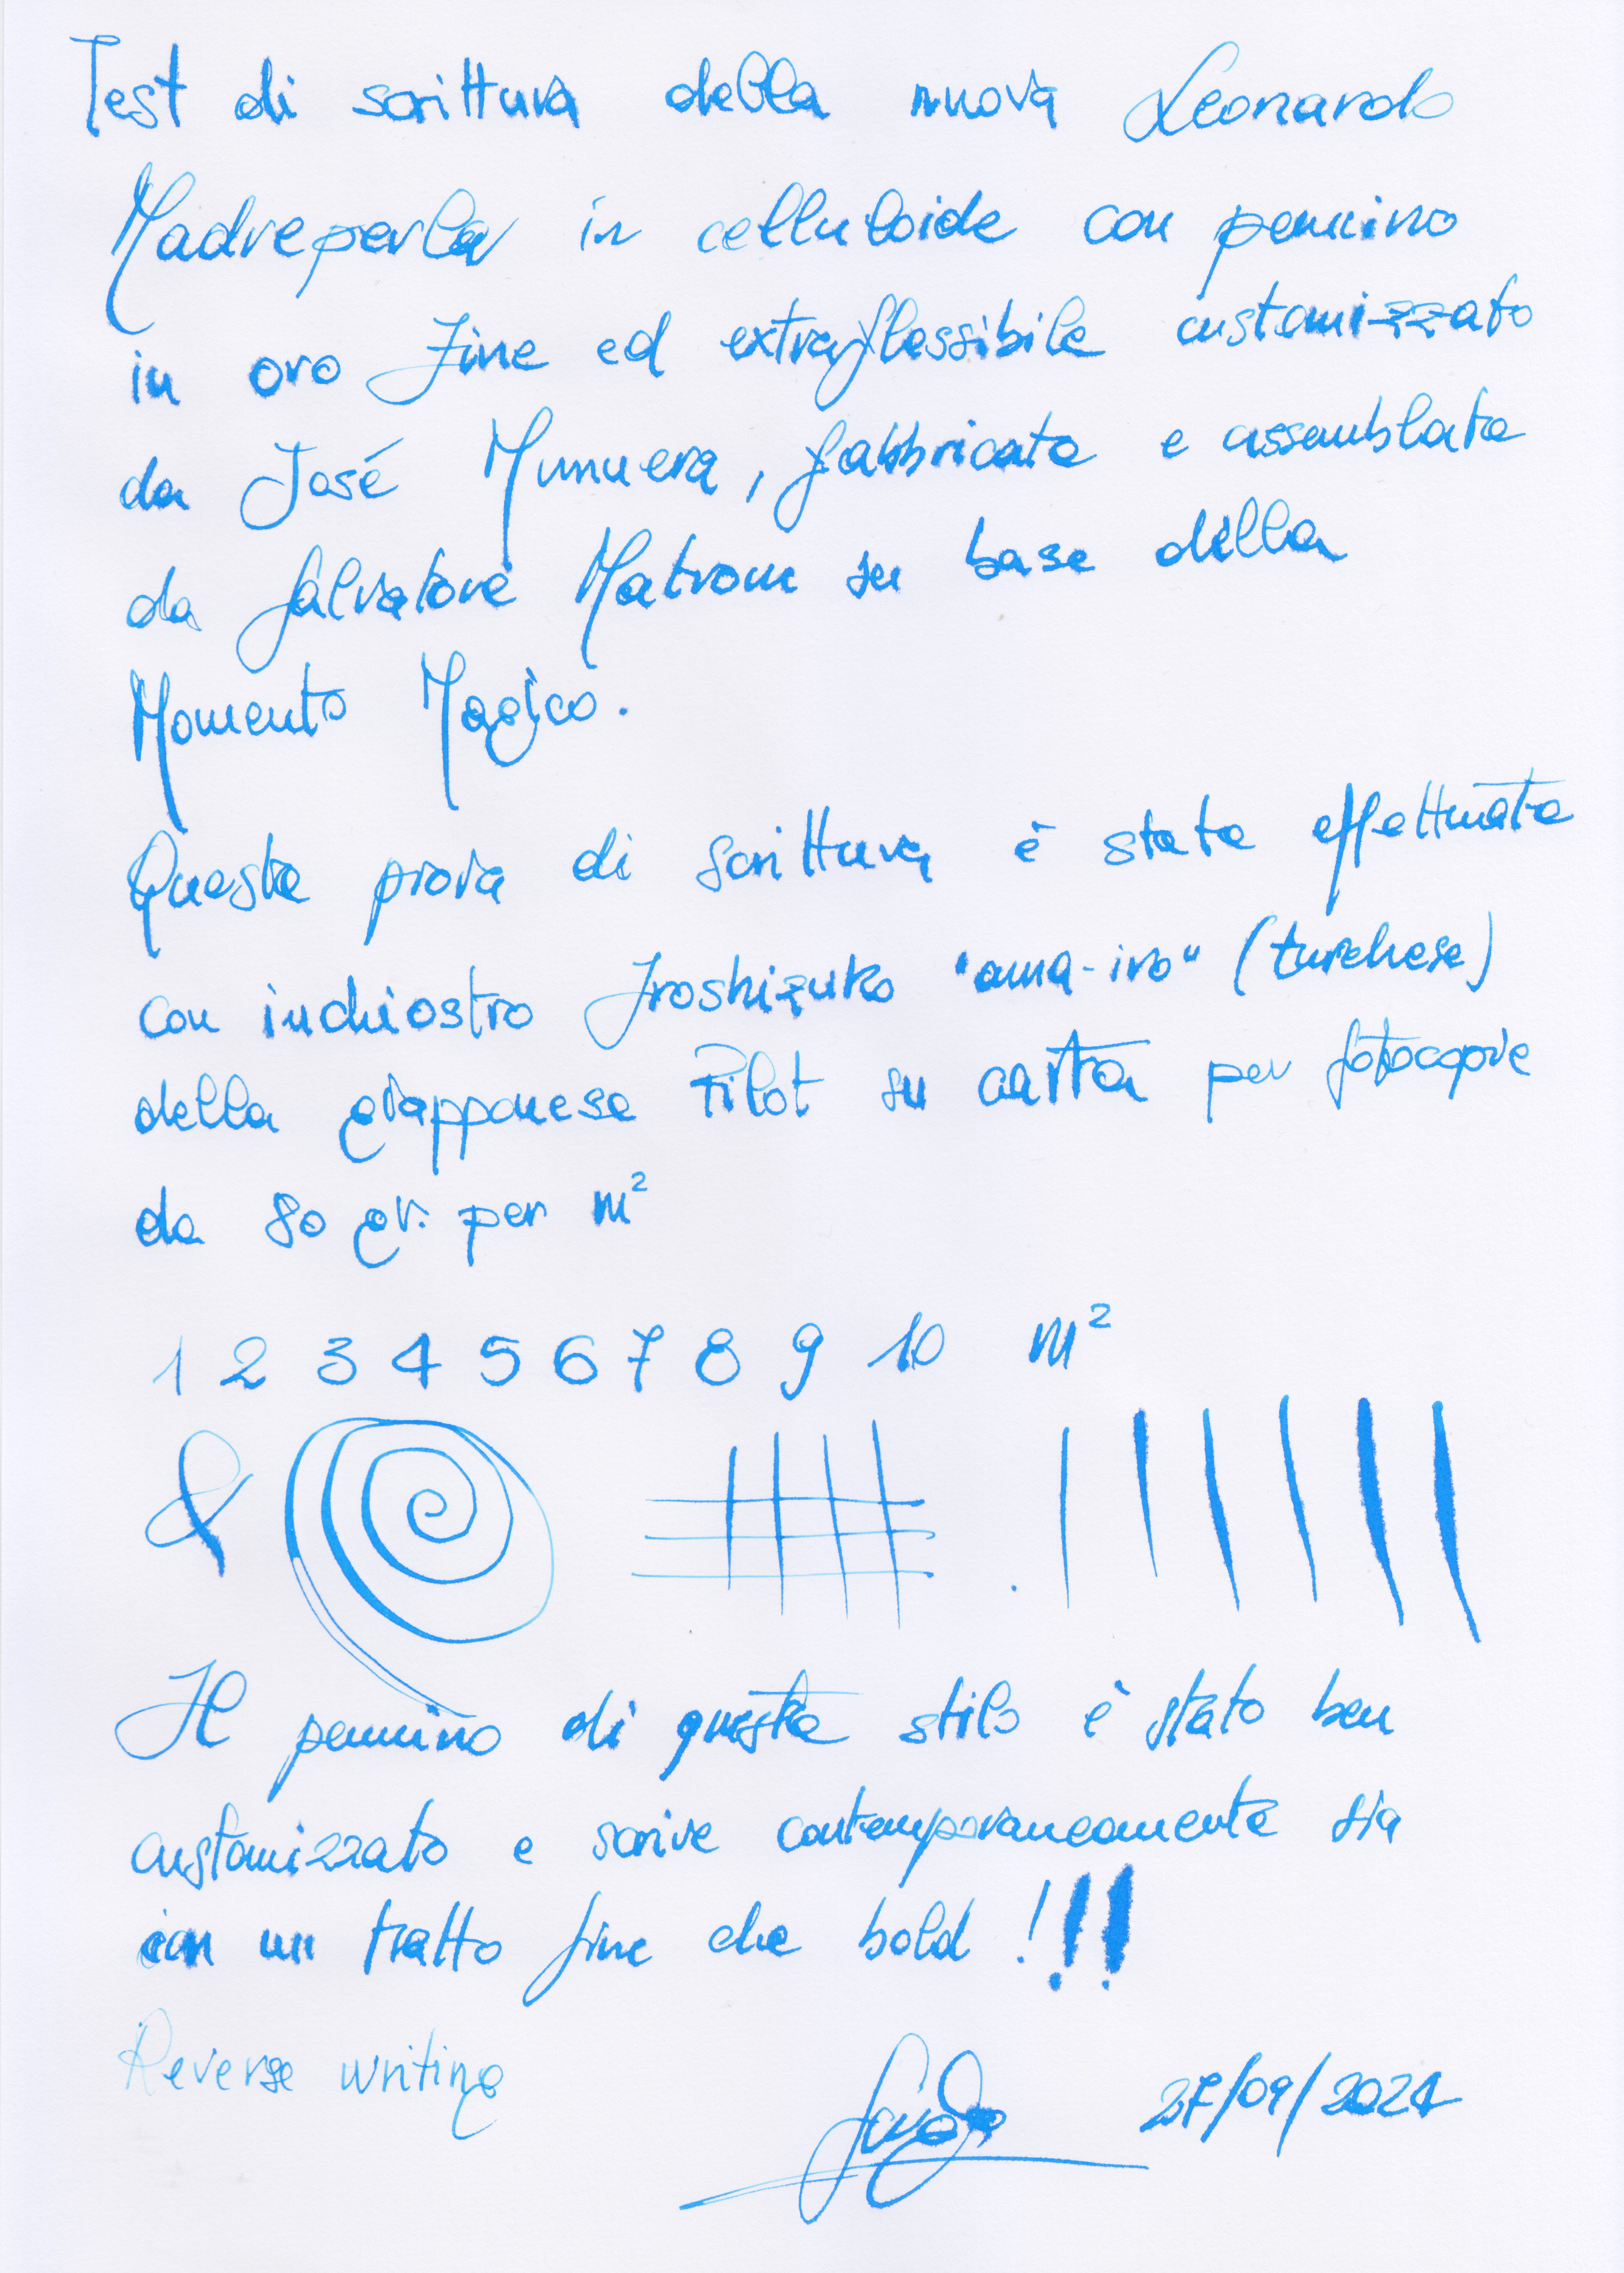 Test di scrittura della nuova Leonardo
Madreperla in celluloide con pennino
in oro Fine ed extraflessibile customizzato
da José Munuera, fabbricata e assemblata
da Salvatore Matrone su base della
Momento Magico.
Questa prova di scrittura è stata effettuata
con inchiostro Iroshizuko "ama-iro" (turchese)
della giapponese Pilot su carta per fotocopie
da 80 gr. per m²
1 2 3 4 5 6 7 8 9 10 m²
&
Il pennino di questa stilo è stato ben
customizzato e scrive contemporaneamente sia
con un tratto fine che bold !!!
Reverse writing
27/09/2021